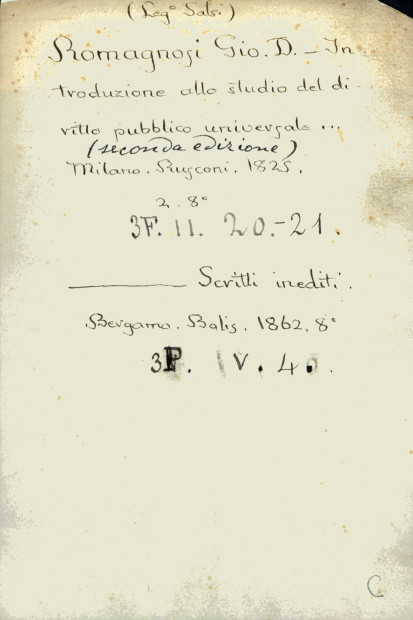 (Leg° Salsi)
Romagnosi Gio. D. – In
troduzione allo studio del di-
ritto pubblico universale ...
(seconda edizione)
Milano. Rusconi. 1825.
2. 8°
3F. II. 20.-21.
——— Scritti inediti.
Bergamo. Bolis. 1862. 8°
3F. IV. 40.
C